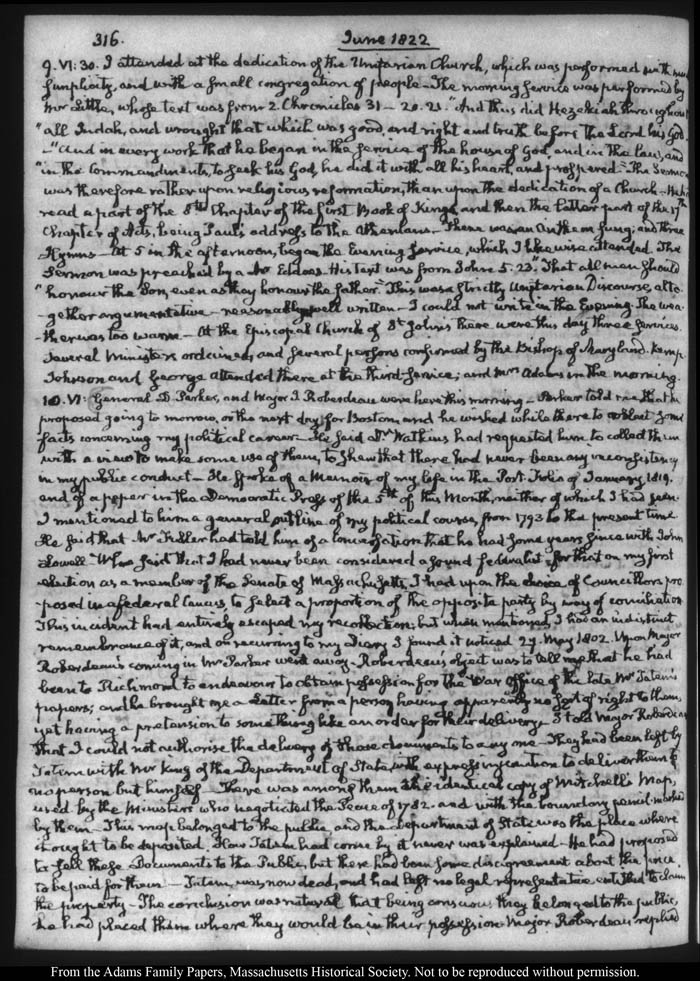 316.
June 1822
9. VI:30. I attended at the dedication of the Unitarian Church, which was performed with much
simplicity, and with a small congregation of people — The morning service was performed by
Mr Little, whose text was from 2. Chronicles 31 — 20. 21. "And thus did Hezekiah throughout
"all Judah, and wrought that which was good and right and truth before the Lord his God
— "And in every work that he began in the service of the house of God, and in the law, and
"in the Commandments, to seek his God, he did it with all his heart, and prospered — The Sermon
was therefore rather upon religious reformation, than upon the dedication of a Church — He
read a part of the 8th Chapter of the first Book of Kings, and then the latter part of the 17th
Chapter of Acts, being Paul's address to the Athenians — There was an Anthem sung, and three
Hymns — At 5 in the afternoon, began the Evening service, which I likewise attended. The
Sermon was preached by a Mr His text was from John 5. 23. "That all men should
"honour the Son, even as they honour the father." This was a strictly Unitarian Discourse, alto-
-gether argumentative — reasonably well written — I could not write in the Evening. The wea-
-ther was too warm — At the Episcopal Church of St Johns there were this day three services.
Several Ministers ordained, and several persons confirmed by the Bishop of Maryland. Kemp.
Johnson and George attended there at the third service; and Mrs Adams in the morning.
10. VI: General D. Parker, and Major I. Roberdeau were here this morning — Parker told me that he
proposed going to morrow, or the next day, for Boston, and he wished while there to collect some
facts concerning my political career — He said Dr Watkins had requested him to collect them
with a view to make some use of them, to shew that there had never been any inconsistency
in my public conduct — He spoke of a Memoir of my life in the Port Folio of January 1819.
and of a paper in the Democratic Press of the 5th of this Month, neither of which I had seen.
I mentioned to him a general outline of my political course, from 1793 to the present time.
He said that Mr Fuller had told him of a conversation that he had some years since with John
Lowell — Who said that I had never been considered a sound federalist for that on my first
election as a member of the Senate of Massachusetts, I had upon the choice of Councillors pro-
-posed in a federal Caucus, to select a proportion of the opposite party by way of conciliation
This incident had entirely escaped my recollection; but when mentioned, I had an indistinct
remembrance of it, and on recurring to my Diary I found it noticed 27. May 1802. Upon Major
Roberdeau's coming in Mr Parker went away. Roberdeau's object was to tell me that he had
been to Richmond to endeavour to obtain possession for the War Office of the late Mr Tatem's
papers; and he brought me a Letter from a person having apparently no sort of right to them,
yet having a pretension to something like an order for their delivery. I told Major Roberdeau
that I could not authorise the delivery of those documents to any one — They had been left by
Tatem with Mr King of the Department of State with express injunction to deliver them to
no person but himself — There was among them the identical copy of Mitchell's Map,
used by the Ministers who negotiated the Peace of 1782. and with the boundary pencil-marked
by them — This map belonged to the public, and the Department of State was the place where
it ought to be deposited. How Tatem had come by it never was explained — He had proposed
to sell these Documents to the Public, but there had been some disagreement about the price
to be paid for them — Tatem, was now dead, and had left no legal representative entitled to claim
the property — The conclusion was natural that being conscious they belonged to the public,
he had placed them where they would be in their possession. Major Roberdeau replied
From the Adams Family Papers, Massachusetts Historical Society. Not to be reproduced without permission.